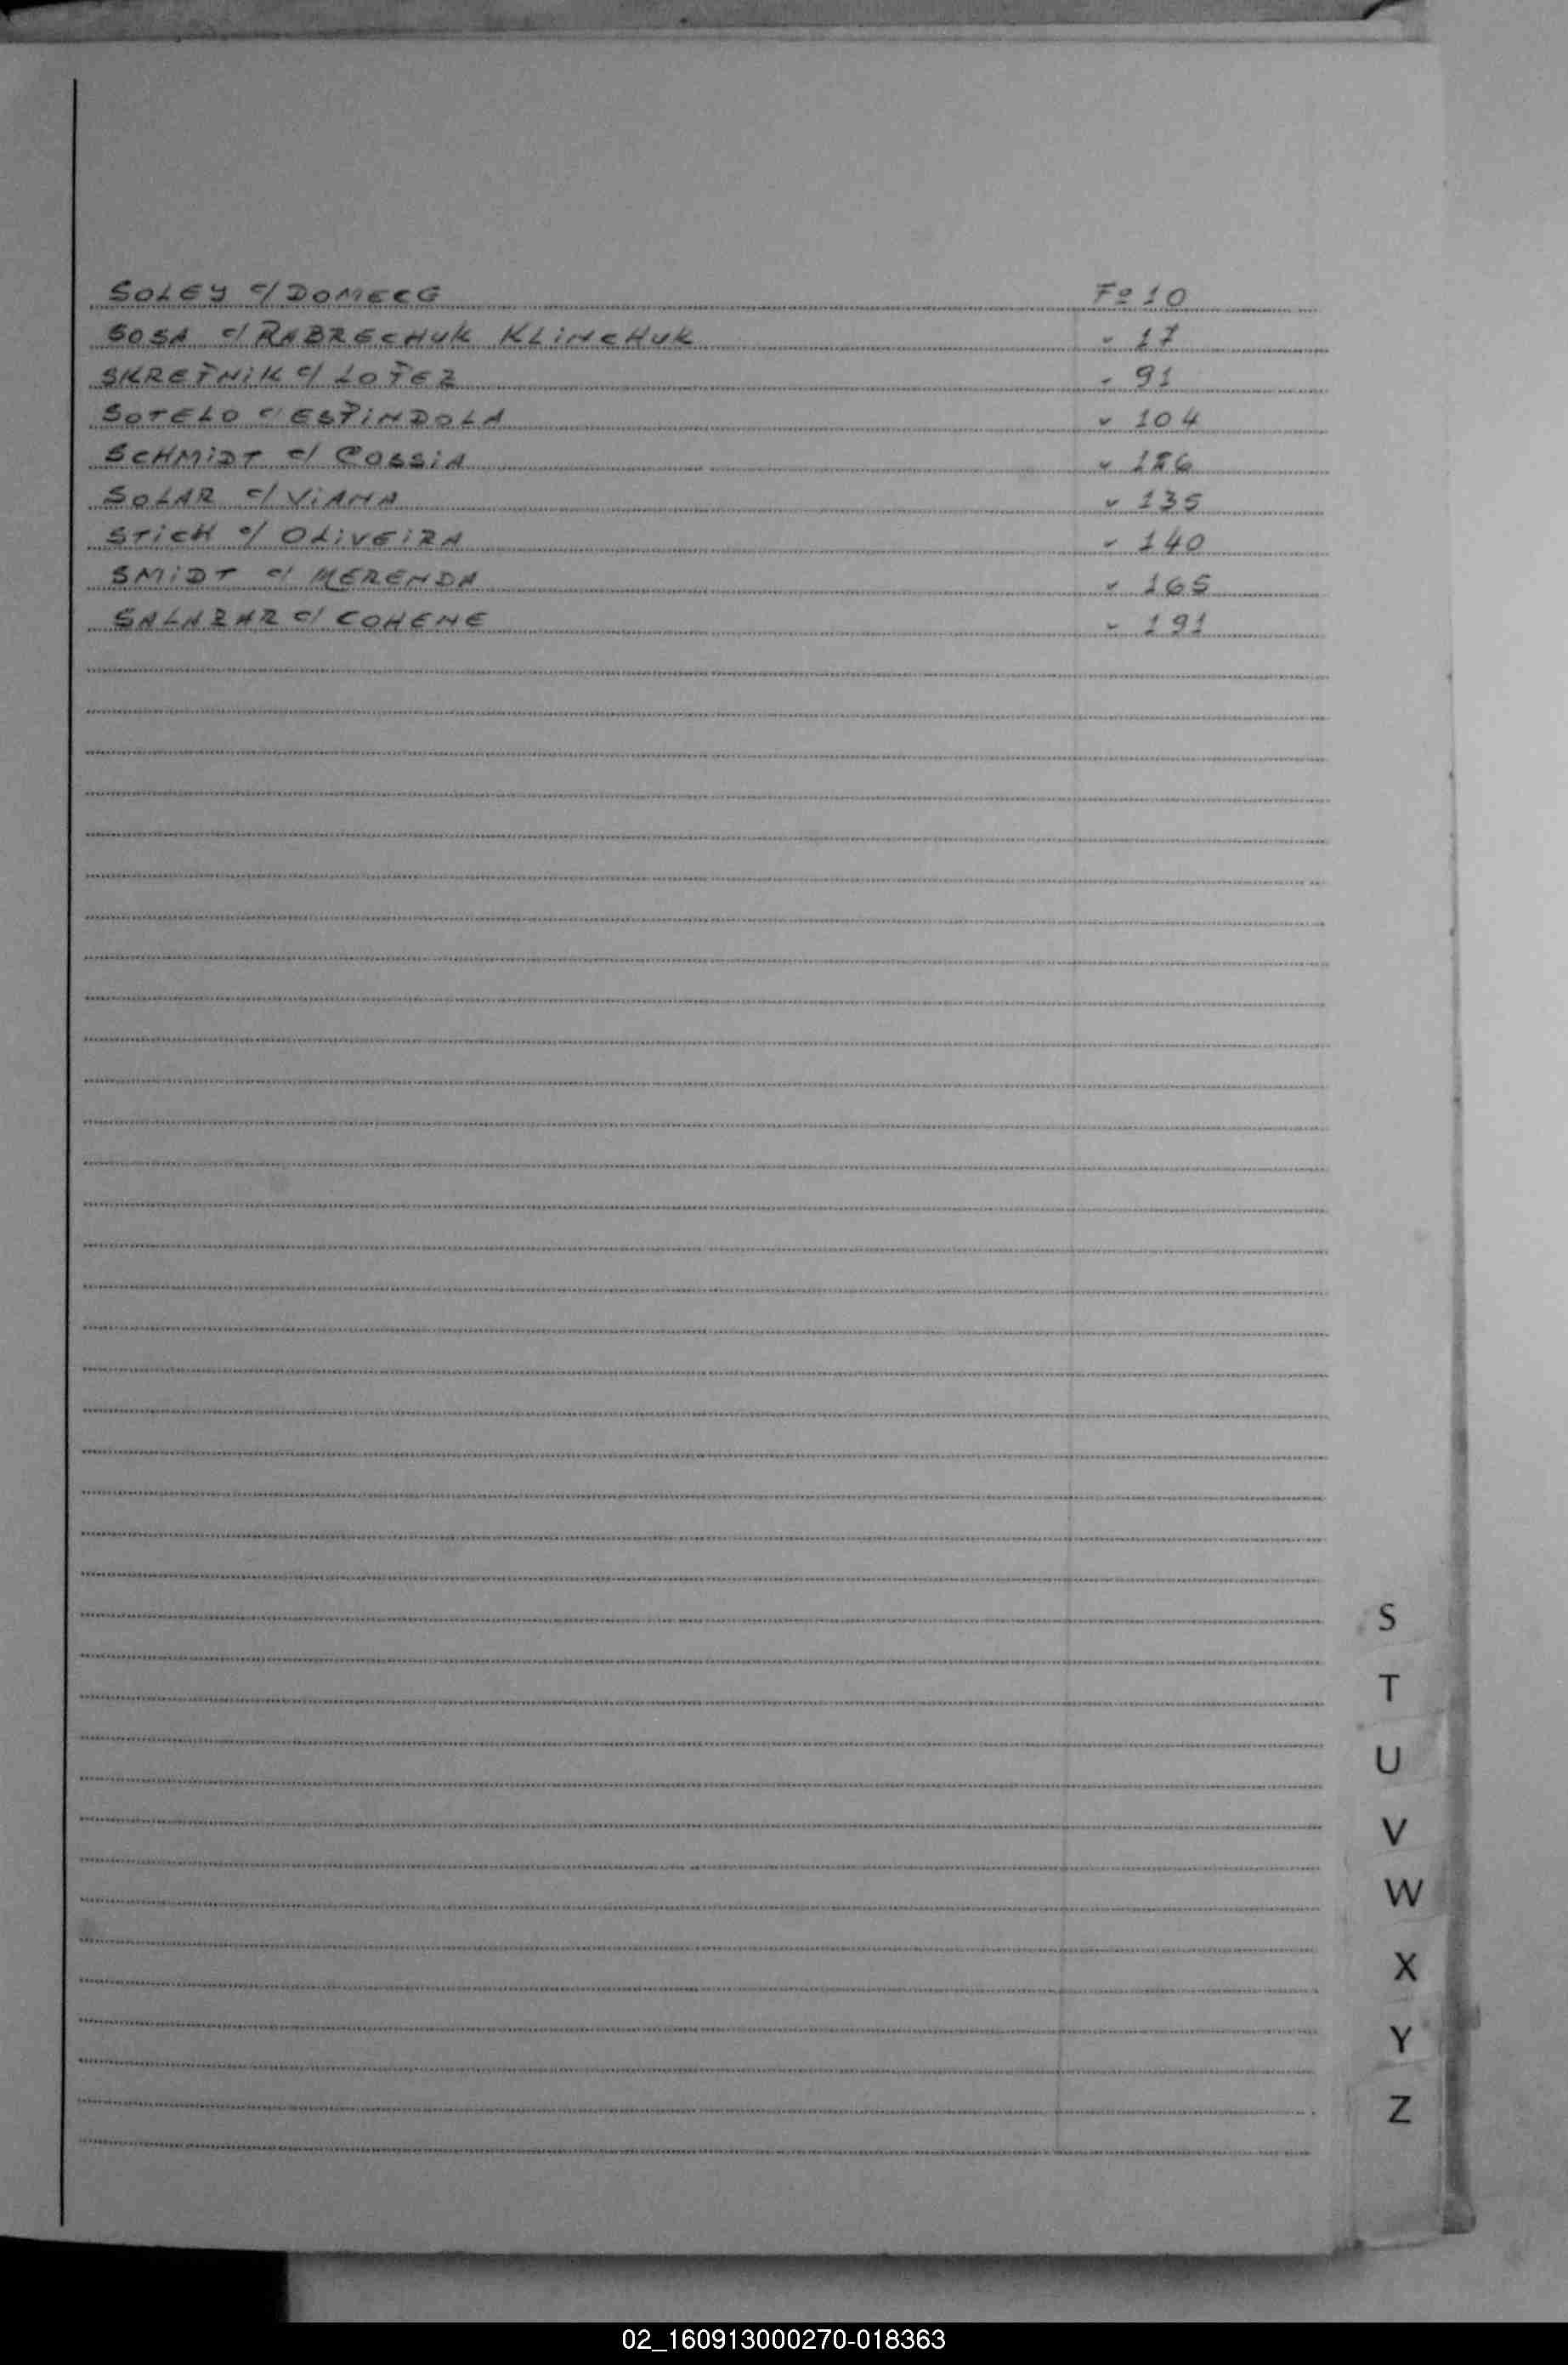 SOLEY c/ DOMECG Fº 10
SOSA c/ RABRECHUK KLINCHUK " 17
SKREPNIK c/ LOPEZ " 91
SOTELO c/ ESPINDOLA " 104
SCHMIDT c/ COSSIA "
SOLAR c/ VIANA " 135
STICH c/ OLIVEIRA " 140
SMIDT c/ MERENDA " 165
SALAZAR c/ COHENE " 191
S
T
U
V
W
X
Y
Z
02_160913000270-018363